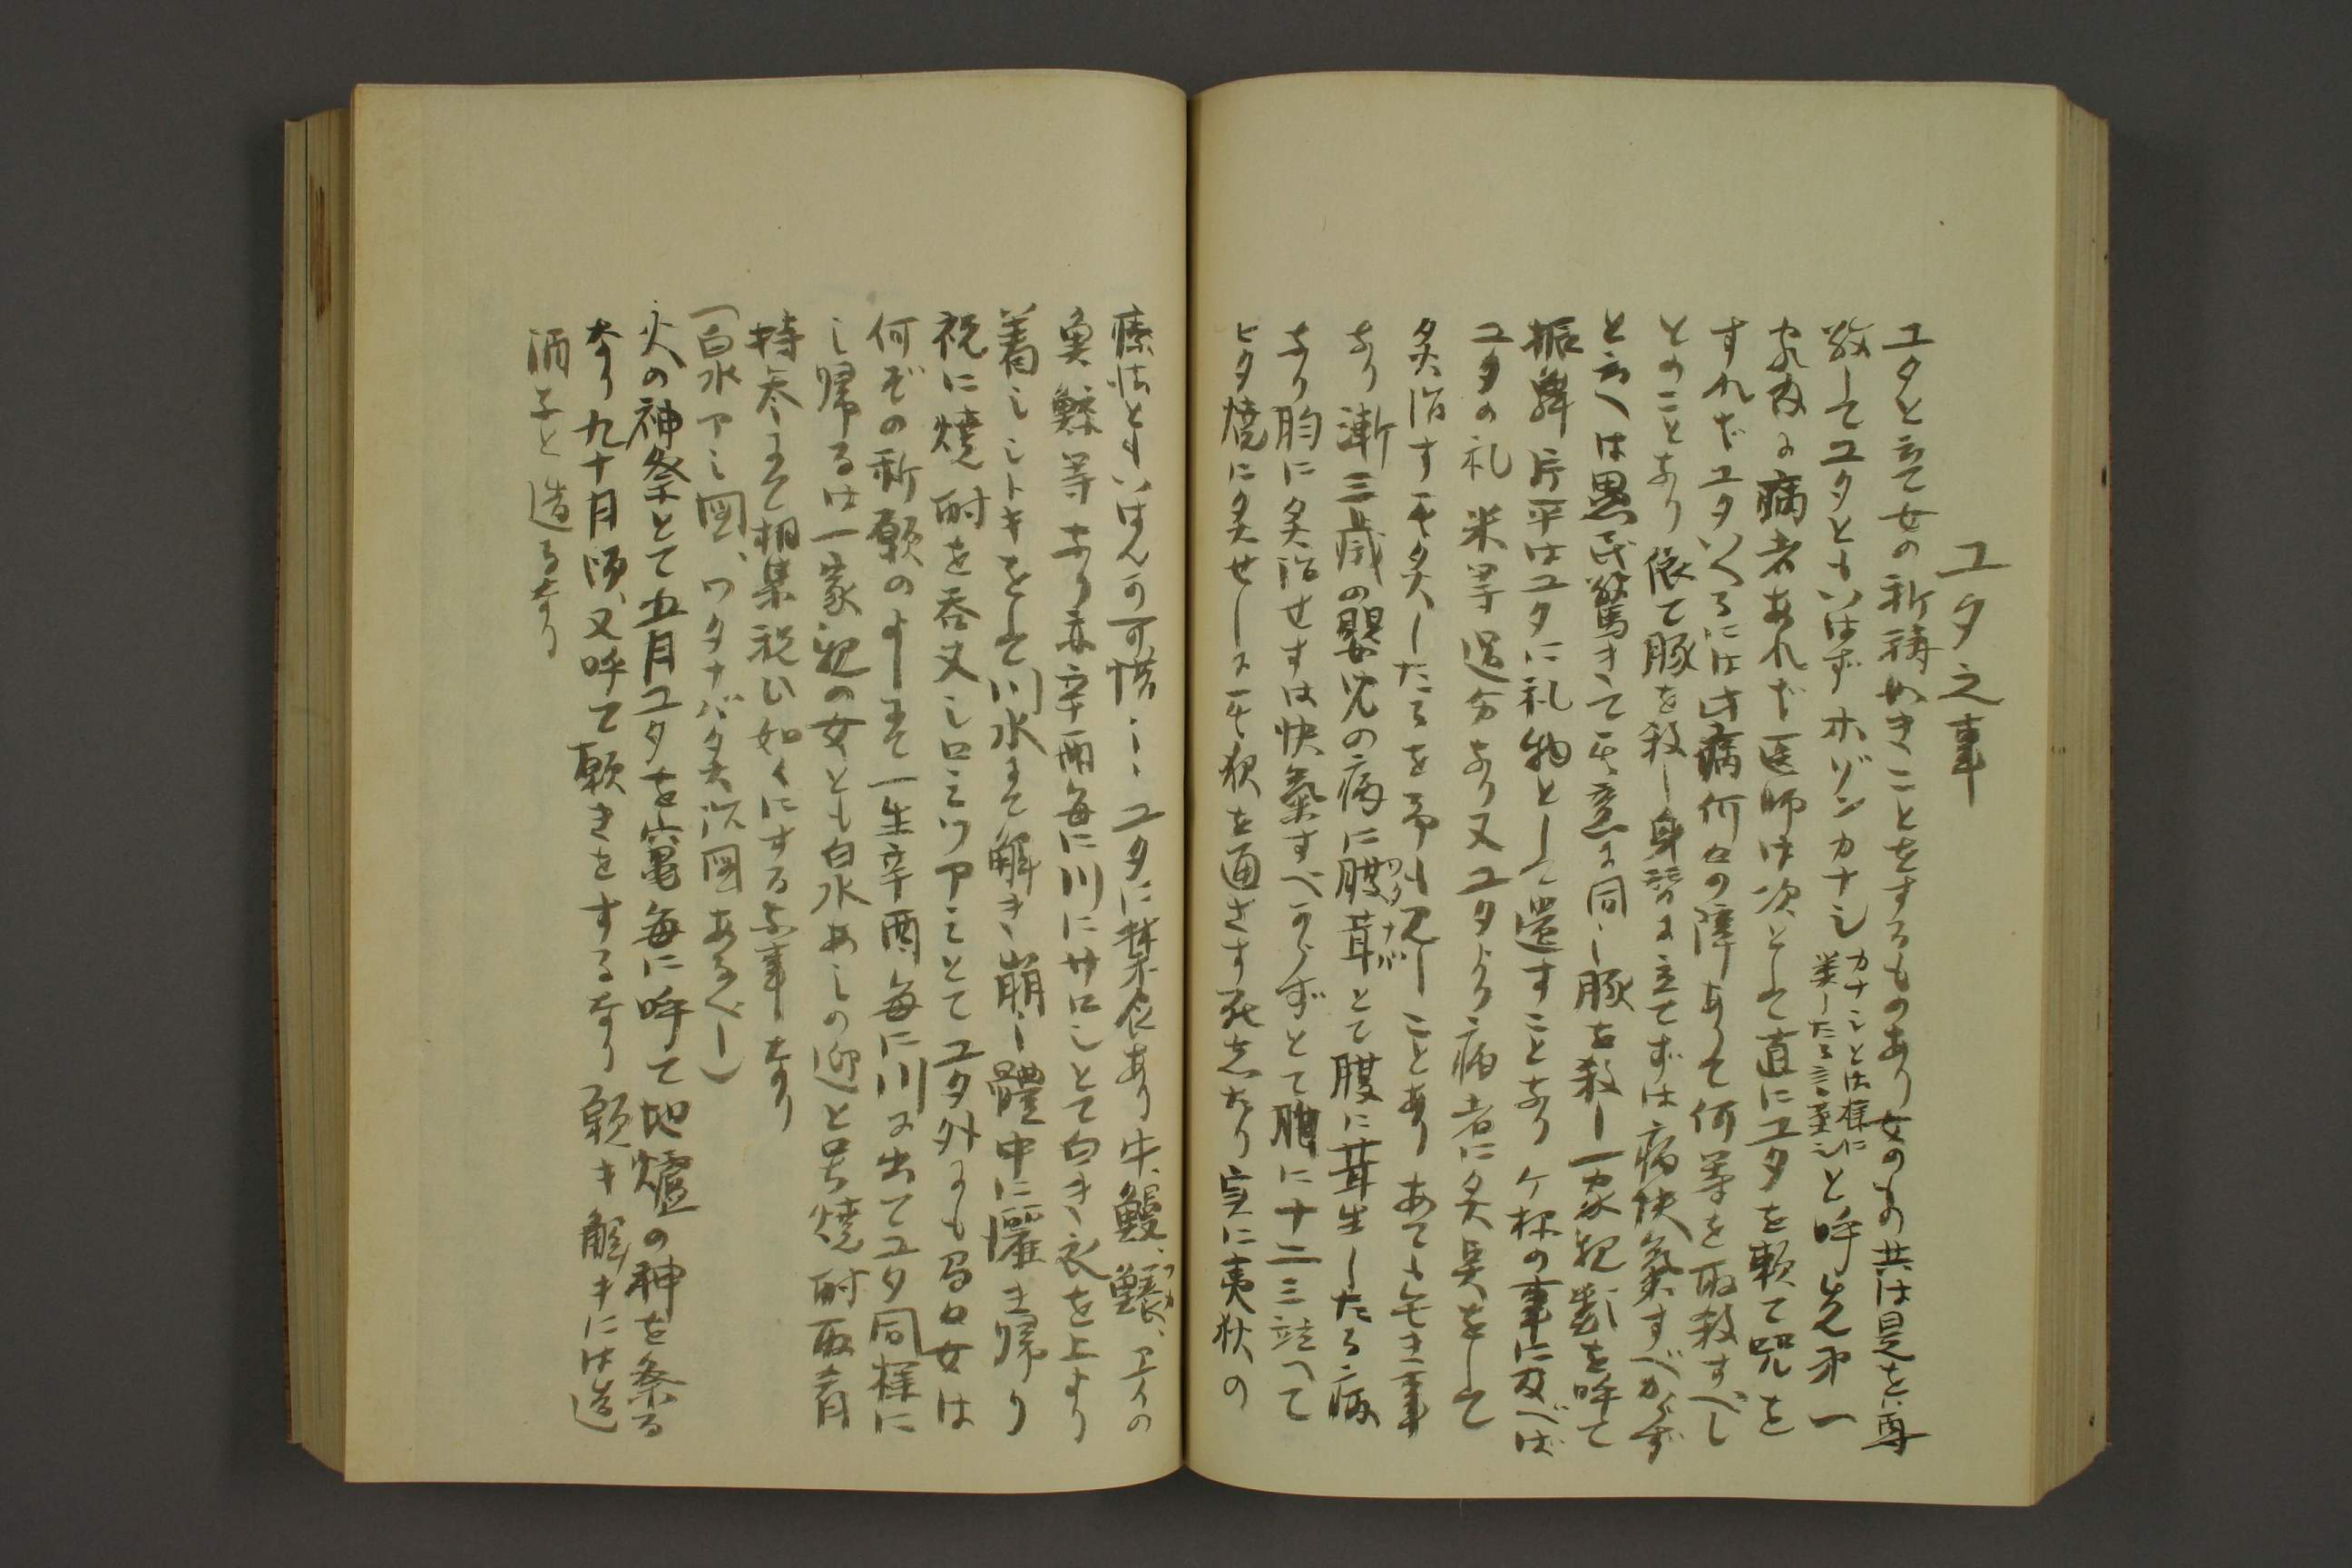 ユタ之事
ユタと立て女の祈祷めきことをするものあり女のもの共は是を尊
敬してユタともいはずホゾンカナシカナシとは様に業したる言葉シと呼先第一
家内に病者あれず医師は次として直にユタを頼て呪を
すれずユタいへるには此病何々の障ありて何等を取殺すべし
とのことなり依て豚を殺し身替に立てずは病快気すべからず
と言へは愚民驚きて其意に同し豚を殺し一家親類を呼て
振舞片平はユタに礼物として遣すことなりケ様の事に及べば
ユタの礼米等過分なり又ユタより病者に灸点をして
灸治す其灸したるを予も見しことありあても无き事
なり漸三歳の嬰児の病に腹茸ワタナバとて腹に茸生したる病
なり胸に灸治せすは快気すべからずとて胸に十二三立へて
ヒタ焼に灸せしに其夜を通さす死去たり実に夷狄の
療法ともいはん可可惜〻ユタに禁食あり牛、鰻、鱶フカ、エイの
魚鯨等なり亦辛酉毎に川にサロシとて白き衣を上より
着シシトキをして川水にて解き崩し體中に灑き帰り
祝に焼酎を呑又シロミヅアミとてユタ外にも島々女は
何ぞの祈願のよしにて一生辛酉毎に川に出てユタ同様に
し帰るは一家親の女とも白水あしの迎と号焼酎取肴
持参にて相集祝ひ如くにする事なり
（白水アミ図、ワタナバ灸治図あるべし）
火の神祭とて五月ユタを竃毎に呼て地爐の神を祭る
なり九十月頃、又呼て願きをするなり願キ解キには造
酒子と造るなり